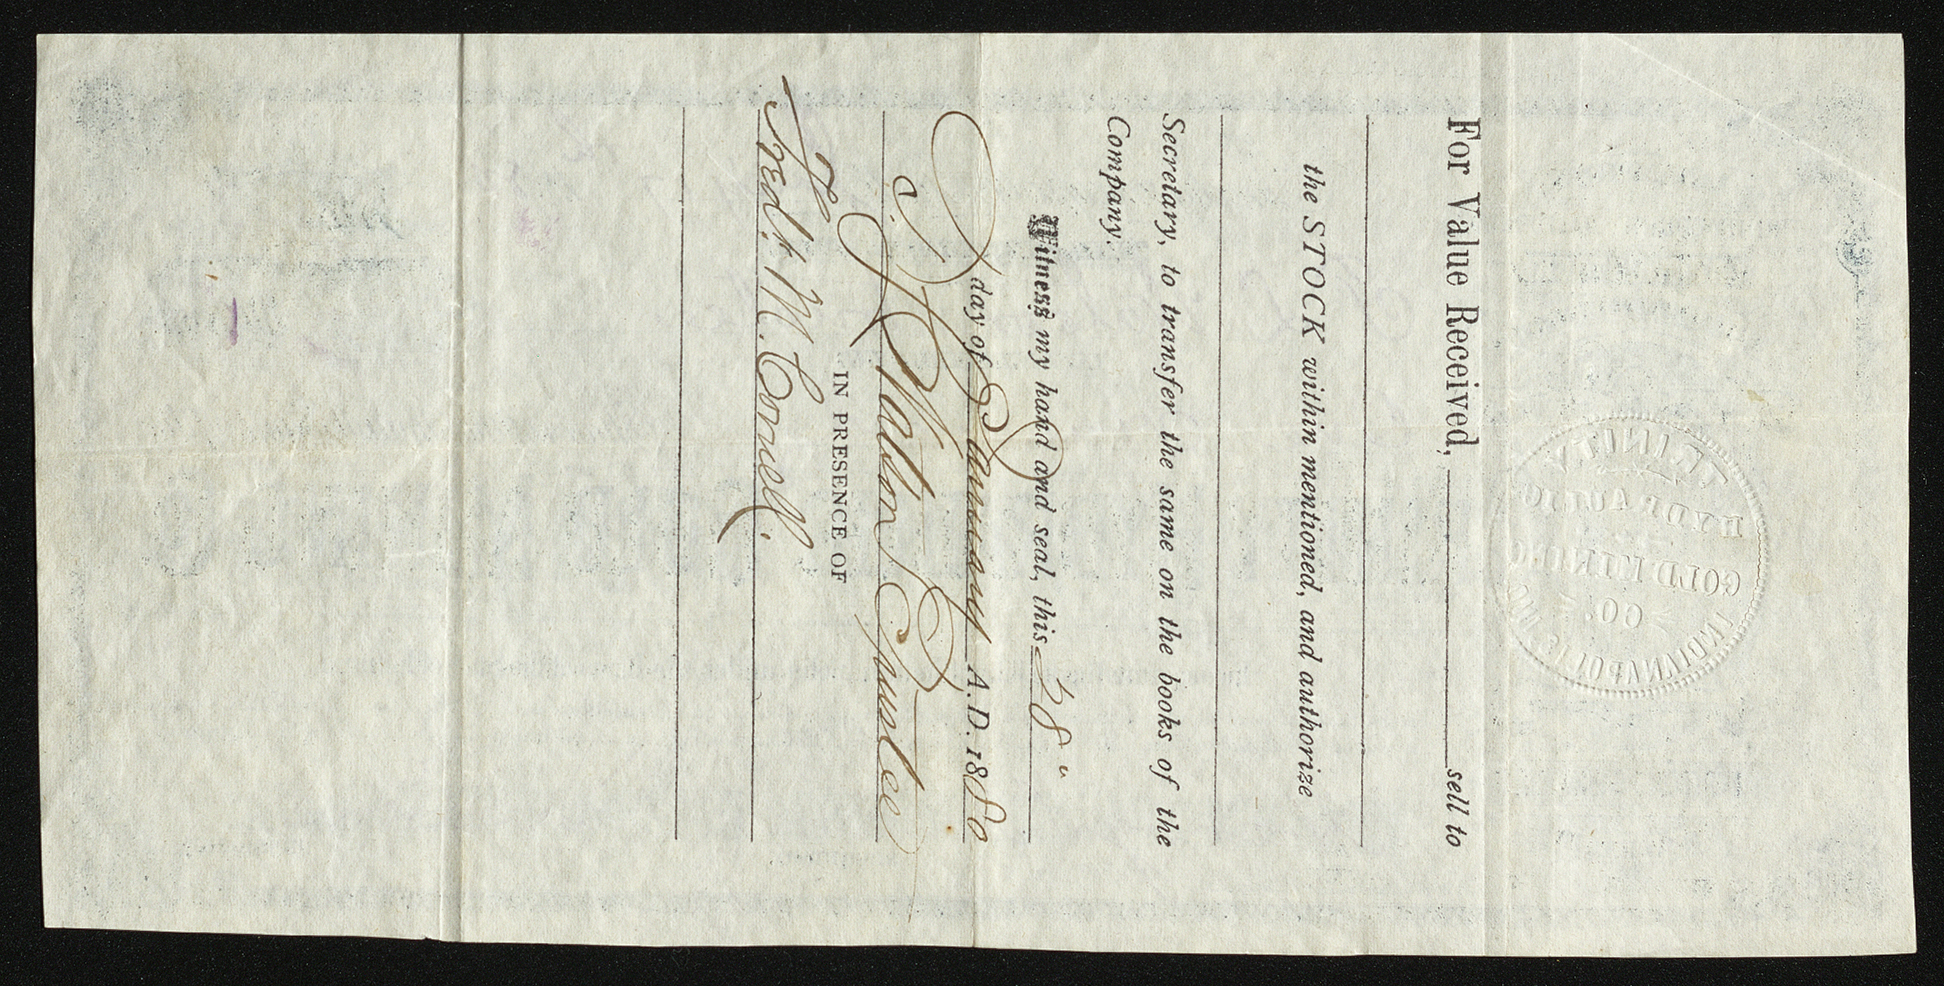 For Value Received, sell to
the STOCK within mentioned, and authorize
Secretary, to transfer the same on the books of the
Company.
Witness my hand and seal, this 28"
day of January A.D. 1880
Watson Trustee
IN PRESENCE OF
Fred. M. Conell.
TRINITY
HYDRAULIC
GOLD MINING
CO.
INDIANAPOLIS, IND.